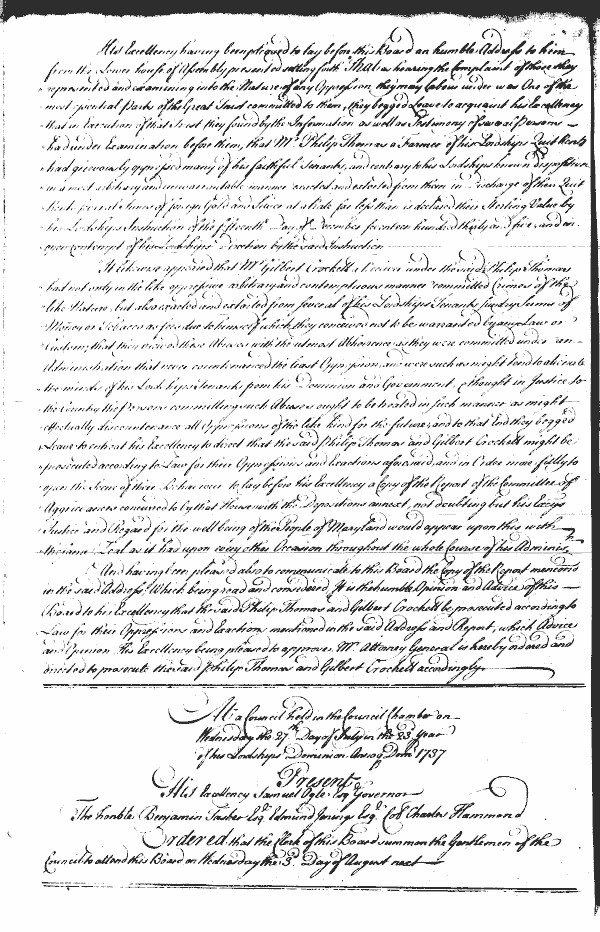 His Excellency having been pleased to lay before this Board an humble Address to him
from the Lower house of Assembly presented setting forth That as hearing the Complaint of those they
represented and examining into the Nature of any Oppression they may labour under was One of the
most essential Parts of the Great Trust committed to them, they begged Leave to acquaint his Excellency
that in Execution of that Trust they found by the Information as well as Testimony of several Persons
had under Examination before them, that Mr Philip Thomas a Farmer of his Lordships Quit Rents
had grievously oppressed many of his faithful Tenants, and contrary to his Lordships known Disposition
in a most arbitrary and unwarrantable manner exacted and extorted from them in Discharge of their Quit
Rents several Sums of foreign Gold and Silver at a Rate far less than is declared their Sterling Value by
his Lordships Instruction of the fifteenth Day of December seventeen hundred thirty and five, and in
open contempt of his Lordships Direction by the said Instruction
It likewise appeared that Mr Gilbert Crockett a Receiver under the said Philip Thomas
had not only in the like oppressive arbitrary and contemptuous manner committed Crimes of the
like Nature, but also exacted and extorted from several of his Lordships Tenants sundry Sums of
Money or Tobacco as fees due to himself which they conceived not to be warranted by any Law or
Custom, that they viewed these Abuses with the utmost Abhorence as they were committed under an
Administration that never countenanced the least Oppression, and were such as might tend to alienate
the minds of his Lordships Tenants from his Dominion and Government, thought in Justice to
the Country the Persons committing such Abuses ought to be treated in such manner as might
effectually discountenance all Oppressions of the like kind for the future, and to that End they begged
Leave to entreat his Excellency to direct that the said Philip Thomas and Gilbert Crockett might be
prosecuted according to Law for their Oppressions and Exactions aforesaid, and in Order more fully to
open the Scene of their Behaviour to lay before his Excellency a Copy of the Report of the Committee of
Aggrievances concurred to by that House with the Depositions annext, not doubting but his Excys
Justice and Regard for the well being of the People of Maryland would appear upon this with
the same Zeal as it had upon every other Occasion throughout the whole Course of his Adminis.n
And having been pleased also to communicate to this Board the Copy of the Report mentiond
in the said Address, Which being read and considered It is the humble Opinion and Advice of this
Board to his Excellency that the said Philip Thomas and Gilbert Crockett be prosecuted according to
Law for their Oppressions and Exactions mentioned in the said Address and Report, which Advice
and Opinion His Excellency being pleased to approve, Mr Attorney General is hereby ordered and
directed to prosecute the said Philip Thomas and Gilbert Crockett accordingly.
At a Council held in the Council Chamber on
Wednesday the 27th Day of July in the 23d Year
of his Lordships Dominion Annoq Domi 1737
Present
His Excellency Samuel Ogle Esqr Governor
The honble Benjamin Tasker Esqr Edmund Jenings Esqr Col Charles Hammond
Ordered that the Clerk of this Board summon the Gentlemen of the
Council to attend this Board on Wednesday the 3d Day of August next